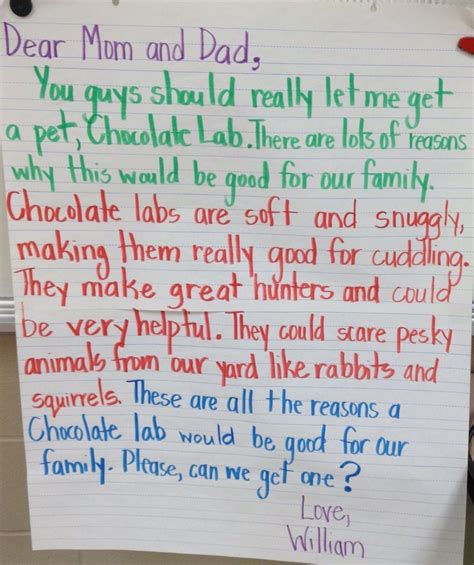 Dear Mom and Dad,
You guys should really let me get
a pet, Chocolate Lab. There are lots of reasons
why this would be good for our family.
Chocolate labs are soft and snuggly,
making them really good for cuddling.
They make great hunters and could
be very helpful. They could scare pesky
animals from our yard like rabbits and
squirrels. These are all the reasons a
Chocolate lab would be good for our
family. Please, can we get one?
Love,
William